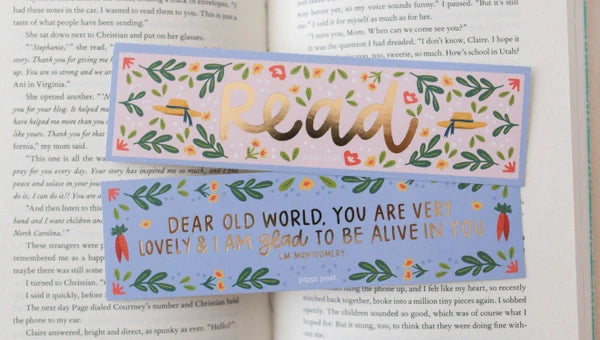 needed in the car. I wanted to read them to you. This is just a
taste of what people have been sending."
She sat down next to Christian and put on her glasses.
"'Stephanie,'" she read,
story. Thank you for giving me
up. You are so strong and we
Ani in Virginia."
She opened another.
you for your blog. It helped
have helped me more than you
like yours. Thank you for that
fornia," my mom said.
"This one is all the wa
pray for you every day. Your story has inspired me so much, and I
peace and solace in your
do it, I can do it!!
"And then listen to this
hand and I want children
North Carolina.'"
These strangers were
remembered me as a happe
maybe there was still some
I turned to Christian.
I said it quickly, before I
The next day Page dialed Courtney's number and Christian held
the phone to my ear.
Claire answered, bright and direct, as spunky as ever. "Hello!"
way before yet, so my voice sounds funny." I paused. "But it's still
me." I said it for myself as much as for her.
"I miss you, Mom. When can we come see you?"
It was the question I had dreaded. "I don't know, Claire. I hope it
can be soon. I miss you, too, sweetie, so much. How's school in Utah?
Read
DEAR OLD WORLD, YOU ARE VERY
LOVELY & I AM glad TO BE ALIVE IN YOU
LM MONTGOMERY
pippi post
hung the phone up, and I felt like my heart, so recently
stitched back together, broke into a million tiny pieces again. I sobbed
openly. The children sounded so good, which was of course what I
hoped for. But it stung, too, to think that they were doing fine with-
out me.